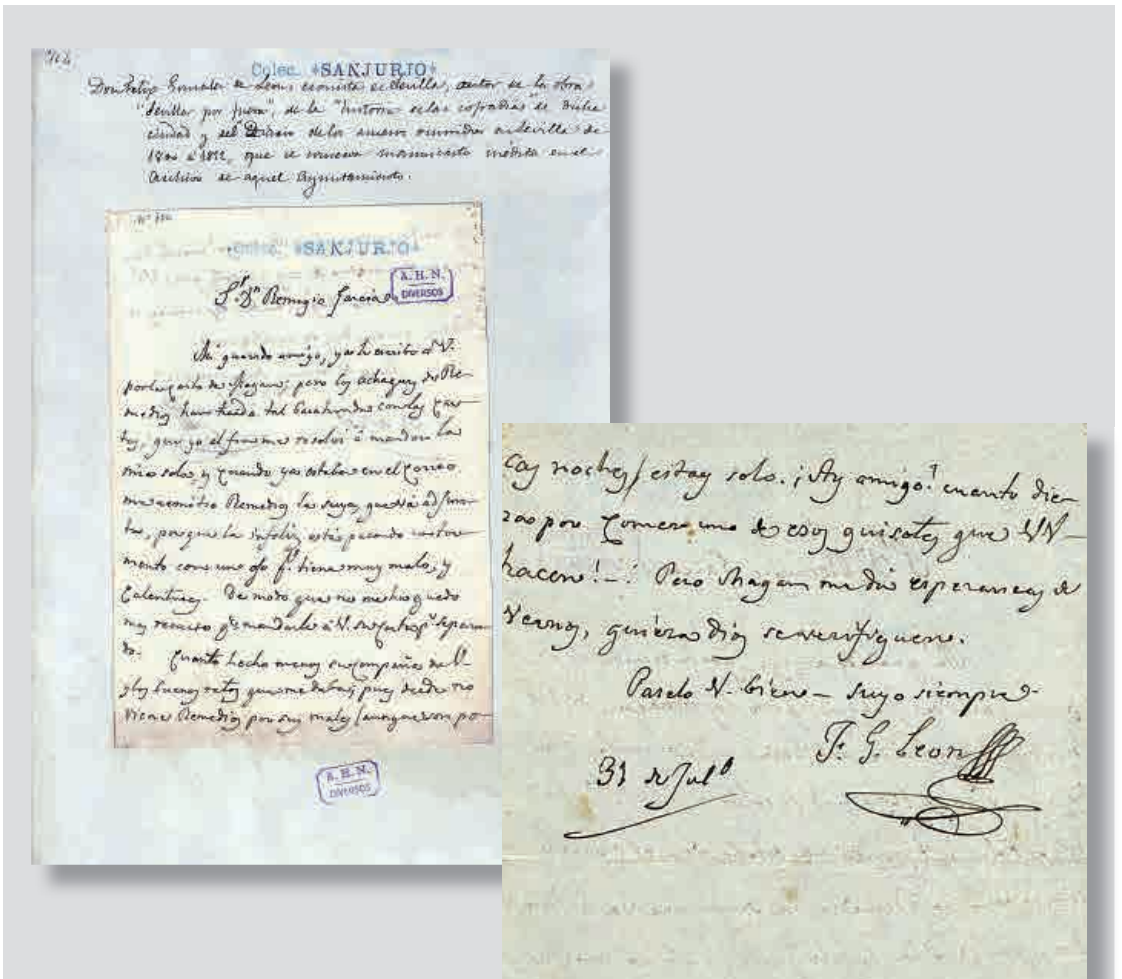 Colec. *SANJURJO*
Don Felix Gonzalez de Leon, cronista de Sevilla, autor de la obra
"Sevilla por fuera", de la "historia de las cofradias" de dicha
ciudad y del Diario de los sucesos ocurridos en Sevilla de
1800 a 18, que se conserva manuscrito inédito en el
Archivo de aquel Ayuntamiento.
Colec. *SANJURJO*
A. H. N.
DIVERSOS
Sr. Dn Remigio Garcia
Mi querido amigo, ya he escrito á V.
por la carta de; pero los achaques de Re-
medios han hecho tal con las car-
tas, que yo al fin me resolví á mandar la
mia sola, y quando ya estaba en el correo
me remitio Remedios la suya, que vá adjun-
ta, porque la infeliz está pasando un tor-
mento con un ojo qe tiene muy malo, y
Calenturas. De modo que no me ha quedo
mas remedio qe mandarla á V. separa-
do. Quanto hecho menos su compañia de V.
y los buenos ratos que me daba, pues desde no
viene Remedios por sus males (aunque son po-
A. H. N.
DIVERSOS
cas noches) estoy solo. ¡Ay amigo! cuanto die-
ra por Comer uno de esos guisotes que VV
hacen!–! Pero me dá esperanzas de
Vernos, quiera dios se verifiquen.
Paselo V. bien – suyo siempre
F. G. Leon
31 de Julo